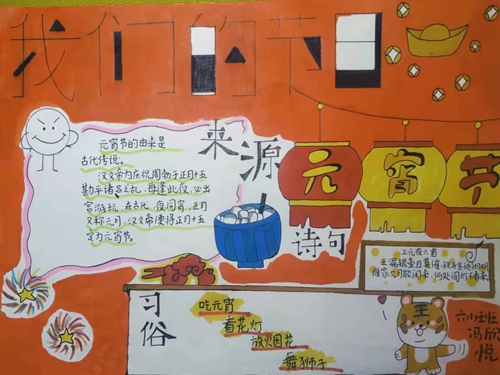 我们的节日
来源
元宵节的由来是
古代传说。
汉文帝为庆祝周勃于正月十五
勘平诸吕之乱,每逢此夜,必出
宫游玩,在古代,夜同宵,正月
又称元月,汉文帝便将正月十五
定为元宵节。
元宵节
诗句
上元夜六首
习俗
吃元宵
看花灯
放烟花
舞狮子
王
冯欣悦